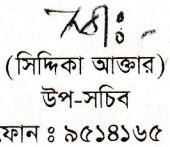 (সিদ্দিকা আক্তার)
উপ-সচিব
ফোন ঃ ৯৫১৪১৬৫